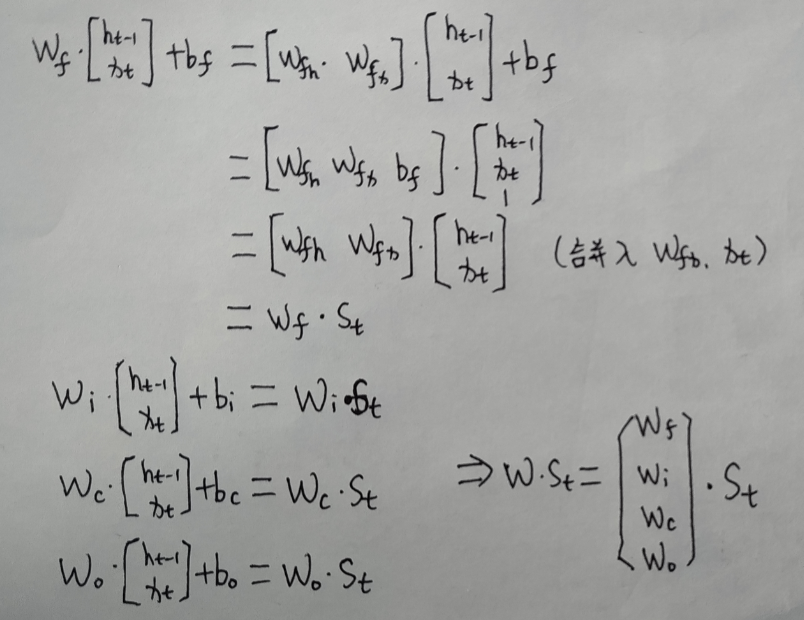 W_f · [h_{t-1} x_t] + b_f = [W_{fh} · W_{fx}] · [h_{t-1} x_t] + b_f
= [W_{fh} W_{fx} b_f] · [h_{t-1} x_t 1]
= [W_{fh} W_{fx}] · [h_{t-1} x_t] (合并入 W_{fx}, x_t)
= W_f · S_t
W_i · [h_{t-1} x_t] + b_i = W_i · S_t
W_c · [h_{t-1} x_t] + b_c = W_c · S_t
⇒ W · S_t = (W_f W_i W_c W_o) · S_t
W_o · [h_{t-1} x_t] + b_o = W_o · S_t